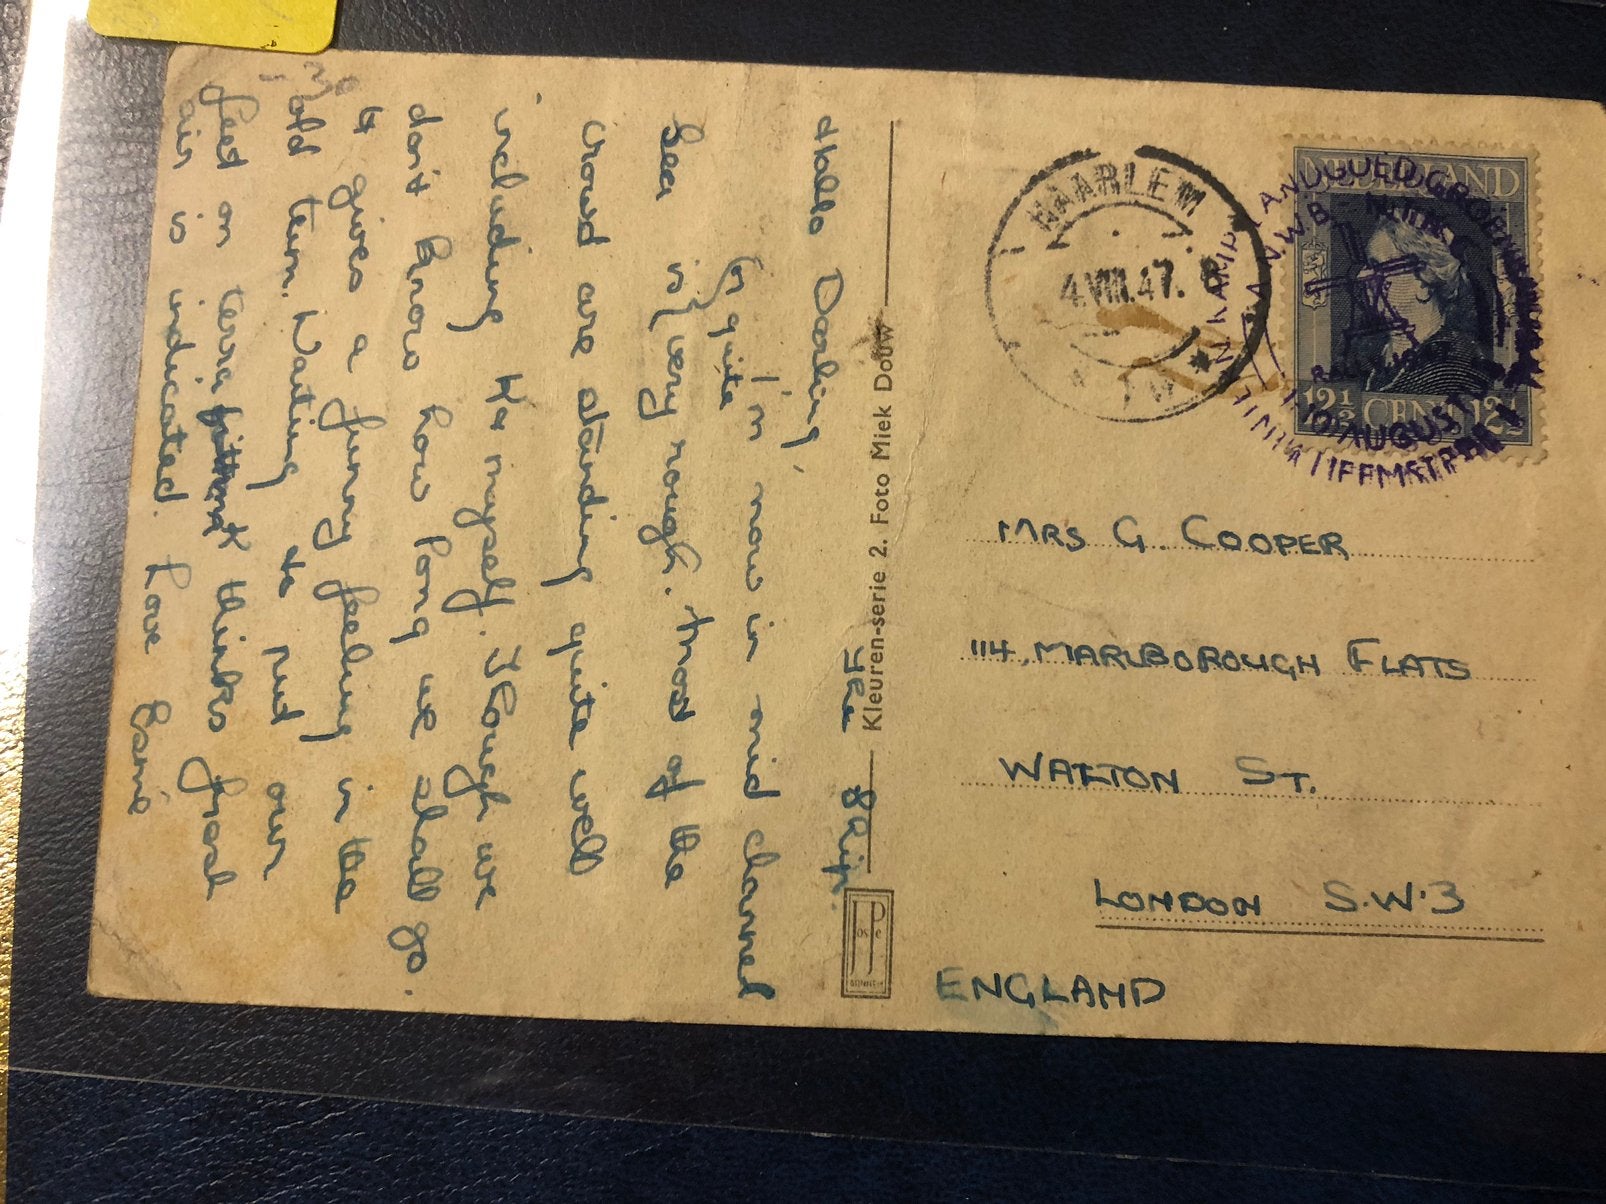 Hallo Darling,
I'm now in mid channel
& quite
Sea is very rough. Most of the
crowd are standing quite well
including & myself. Though we
don't know how long we shall go.
It gives a funny feeling in the
old tum. Waiting to put our
feet on terra thinks fresh
air is indicated. Love Esmé
Kleuren-serie 2. Foto Miek Douw
HAARLEM
4.VIII.47. 8
NEDERLAND
12½ CENT 12½
LANDGOED
AUGUST
MRS G. COOPER
114, MARLBOROUGH FLATS
WALTON ST.
LONDON S.W.3
ENGLAND